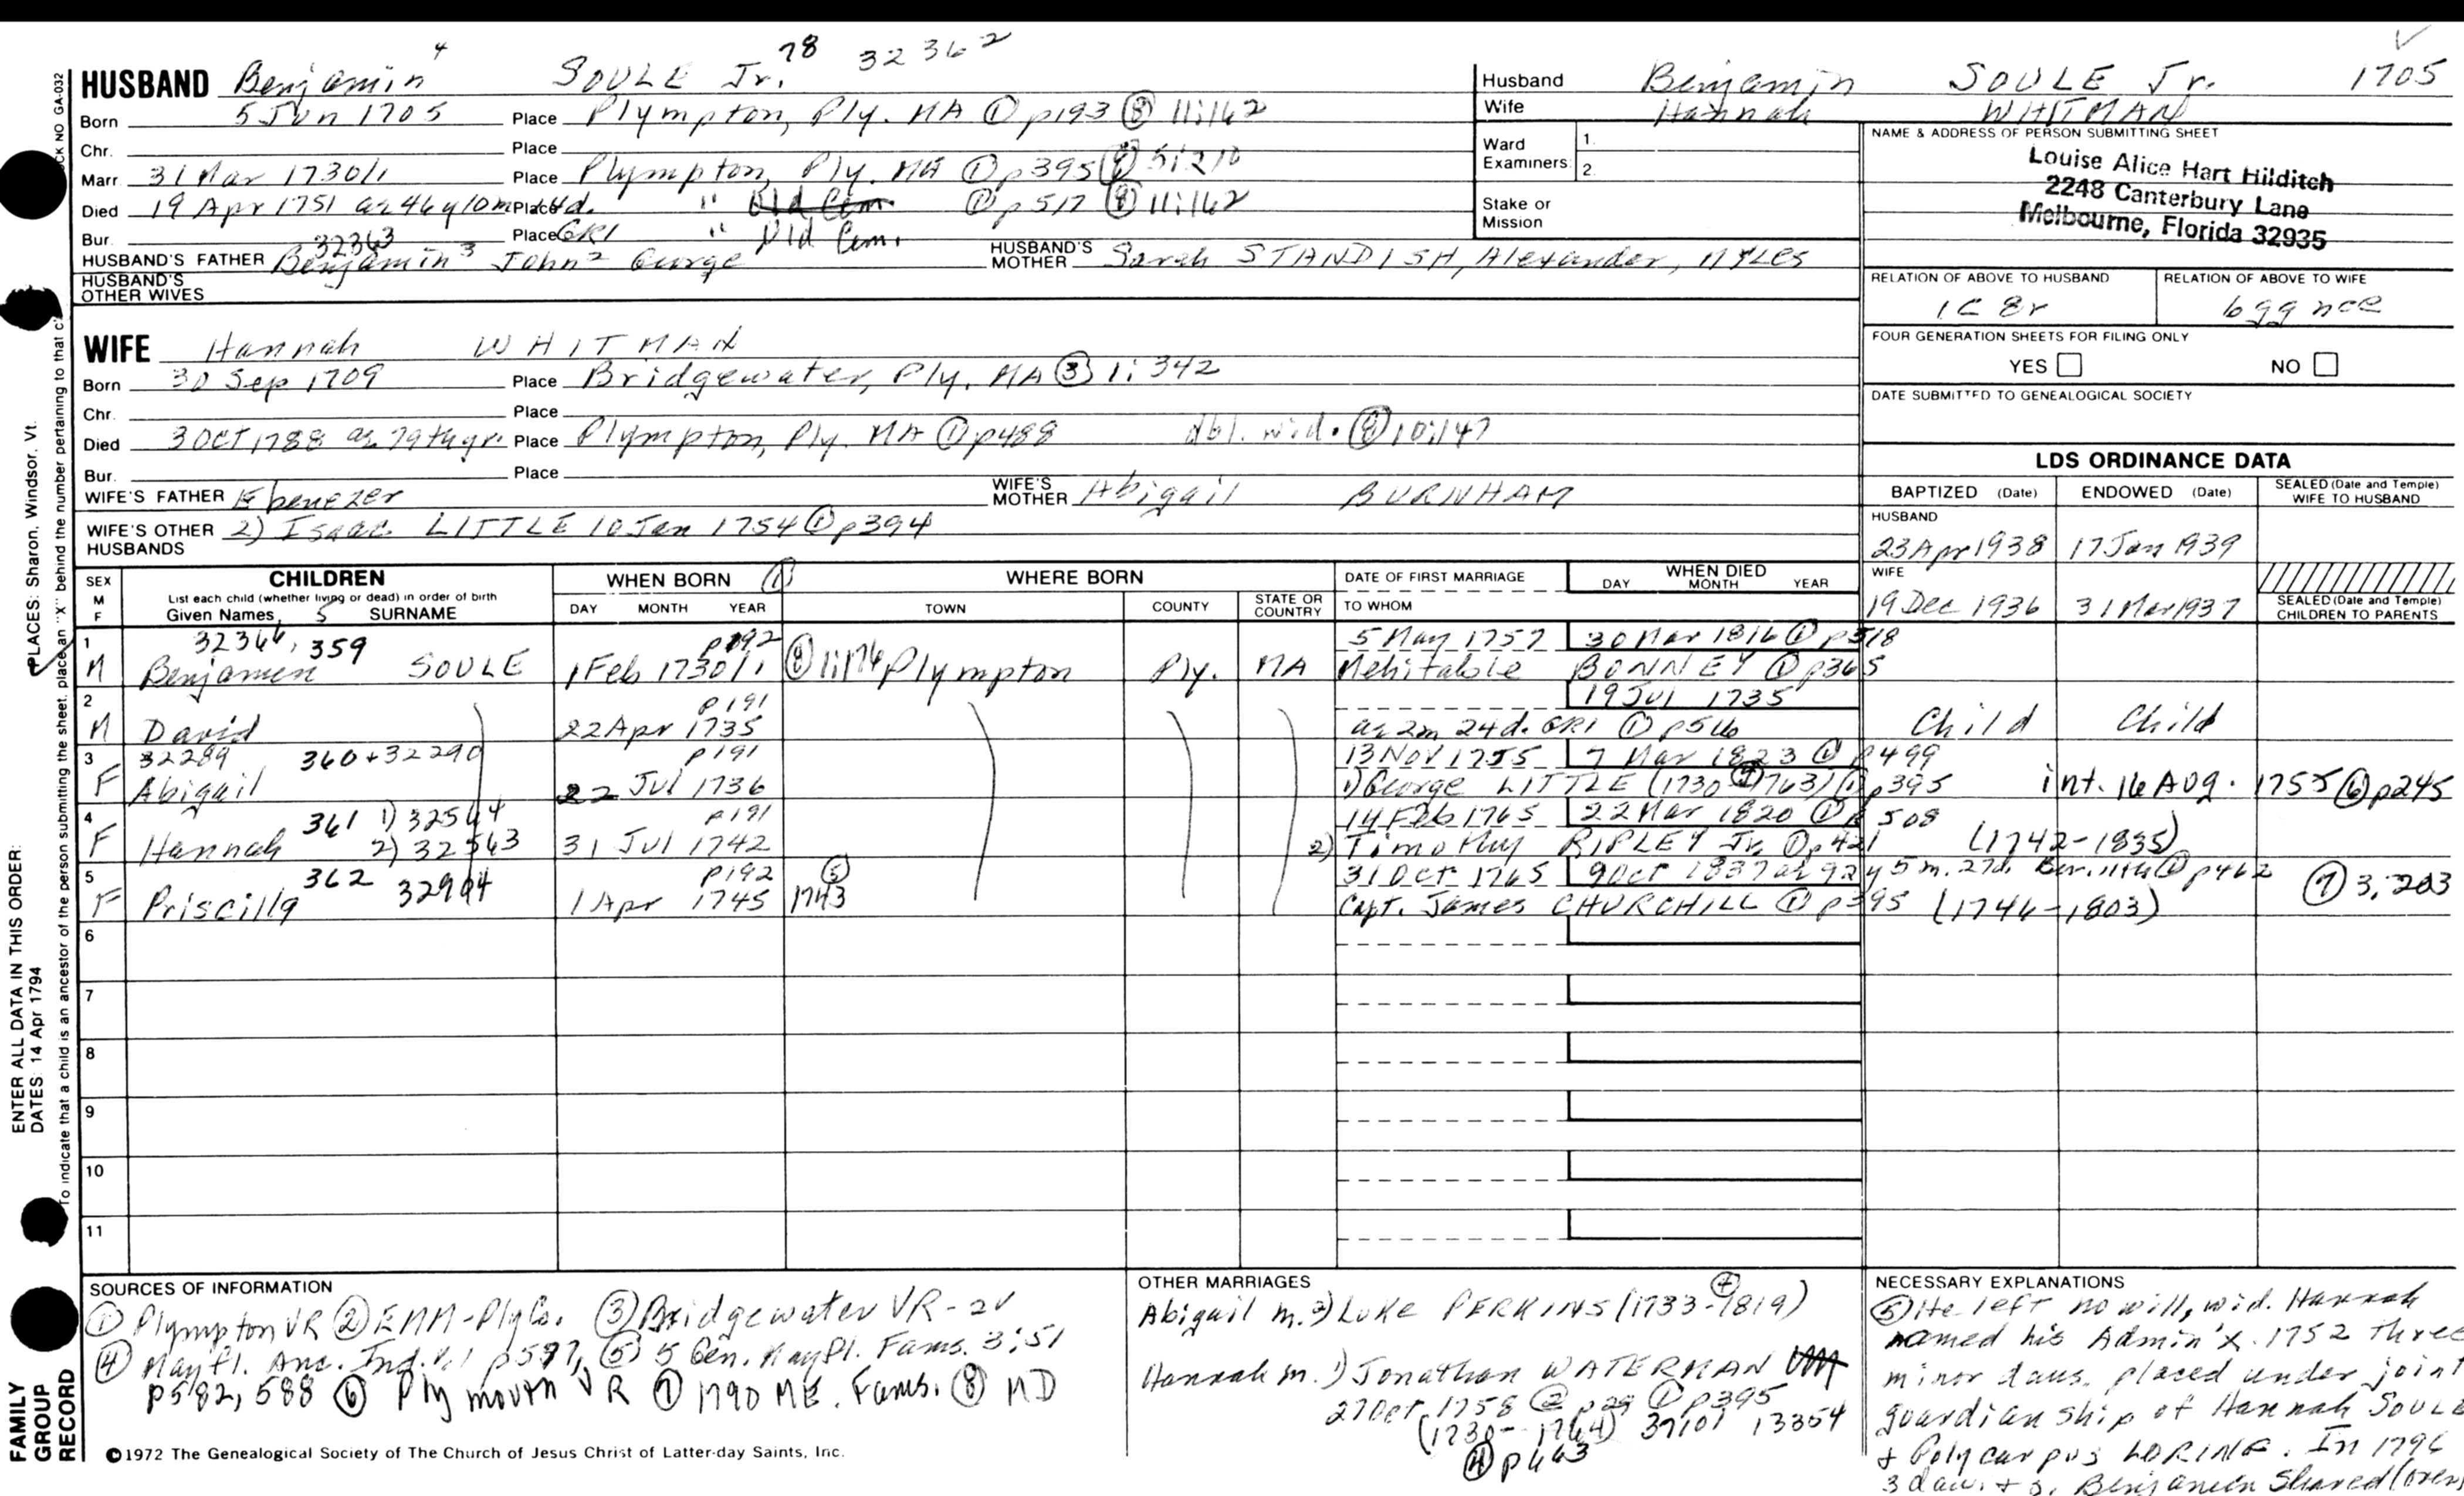 78 32362
HUSBAND Benjamin 4 SOULE Jr.
Born 5 Jun 1705 Place Plympton, Ply. MA ① p193 ⑧ 11:162
Chr. Place
Marr. 31 Mar 1730/1 Place Plympton, Ply. MA ① p395 ⑧ 5:210
Died 19 Apr 1751 ae 46y10m14d. Place " Old Cem. ① p517 ⑧ 11:162
Bur. Place GR1 " Old Cem.
32363
HUSBAND'S FATHER Benjamin 3 John 2 George HUSBAND'S MOTHER Sarah STANDISH, Alexander, MYLES
HUSBAND'S OTHER WIVES
WIFE Hannah WHITMAN
Born 30 Sep 1709 Place Bridgewater, Ply. MA ③ 1:342
Chr. Place
Died 3 OCT 1788 ae 79th yr. Place Plympton, Ply. MA ① p488 dbl. wid. ⑧ 10:147
Bur. Place
WIFE'S FATHER Ebenezer WIFE'S MOTHER Abigail BURNHAM
WIFE'S OTHER HUSBANDS 2) Isaac LITTLE 10 Jan 1754 ① p394
Husband Benjamin SOULE Jr. 1705
Wife Hannah WHITMAN
Ward Examiners: 1.
2.
Stake or Mission
NAME & ADDRESS OF PERSON SUBMITTING SHEET
Louise Alice Hart Hilditch
2248 Canterbury Lane
Melbourne, Florida 32935
RELATION OF ABOVE TO HUSBAND RELATION OF ABOVE TO WIFE
1C 8r 6gg nce
FOUR GENERATION SHEETS FOR FILING ONLY
YES NO
DATE SUBMITTED TO GENEALOGICAL SOCIETY
LDS ORDINANCE DATA
BAPTIZED (Date) ENDOWED (Date) SEALED (Date and Temple) WIFE TO HUSBAND
HUSBAND
23 Apr 1938 17 Jan 1939
WIFE
19 Dec 1936 31 Mar 1937 SEALED (Date and Temple) CHILDREN TO PARENTS
SEX M F CHILDREN WHEN BORN ① WHERE BORN DATE OF FIRST MARRIAGE WHEN DIED
List each child (whether living or dead) in order of birth
Given Names 5 SURNAME DAY MONTH YEAR TOWN COUNTY STATE OR COUNTRY TO WHOM DAY MONTH YEAR
1 32364, 359 p192 5 May 1757 30 Mar 1816 ① p518
M Benjamin SOULE 1 Feb 1730/1 ⑧ 11:174 Plympton Ply. MA Mehitable BONNEY ① p365
2 p191 19 Jul 1735
M David 22 Apr 1735 ae 2m 24d. GR1 ① p516 Child Child
3 32289 360+32290 p191 13 NOV 1755 7 Mar 1823 ① p499
F Abigail 22 Jul 1736 1) George LITTLE (1730 ④ 1763) ① p395 int. 16 AUG. 1755 ⑥ p245
4 361 1) 32564 p191 14 Feb 1765 22 Mar 1820 ① p508
F Hannah 2) 32563 31 Jul 1742 2) Timothy RIPLEY Jr. ① p421 (1742-1835)
5 362 32904 p192 ⑤ 31 Oct 1765 9 Oct 1837 ae 92y 5m. 27d. Bur. 11th ① p462 ⑦ 3:203
F Priscilla 1 Apr 1745 1743 Capt. James CHURCHILL ① p395 (1746-1803)
6
7
8
9
10
11
SOURCES OF INFORMATION
① Plympton VR ② EMM-PlyCo. ③ Bridgewater VR-2v
④ Mayfl. Anc. Ind. V.1 p597, ⑤ 5 Gen. Mayfl. Fams. 3:51
p582, 588 ⑥ Plymouth VR ⑦ 1790 ME. Fams. ⑧ MD
OTHER MARRIAGES
Abigail m. 2) LUKE PERKINS (1733 ④ 1819)
Hannah m. 1) Jonathan WATERMAN
27 Oct 1758 ② p29 ① p395
(1730-1764) 37101 13354
④ p663
NECESSARY EXPLANATIONS
⑤ He left no will, wid. Hannah
named his Admin'x. 1752 three
minor daus. placed under joint
guardianship of Hannah SOULE
+ Polycarpus LORING. In 1796
3 dau. + s. Benjamin shared (over)
©1972 The Genealogical Society of The Church of Jesus Christ of Latter-day Saints, Inc.
FAMILY GROUP RECORD
ENTER ALL DATA IN THIS ORDER:
DATES: 14 Apr 1794
PLACES: Sharon, Windsor, Vt.
To indicate that a child is an ancestor of the person submitting the sheet, place an "X" behind the number pertaining to that
CK NO GA-032